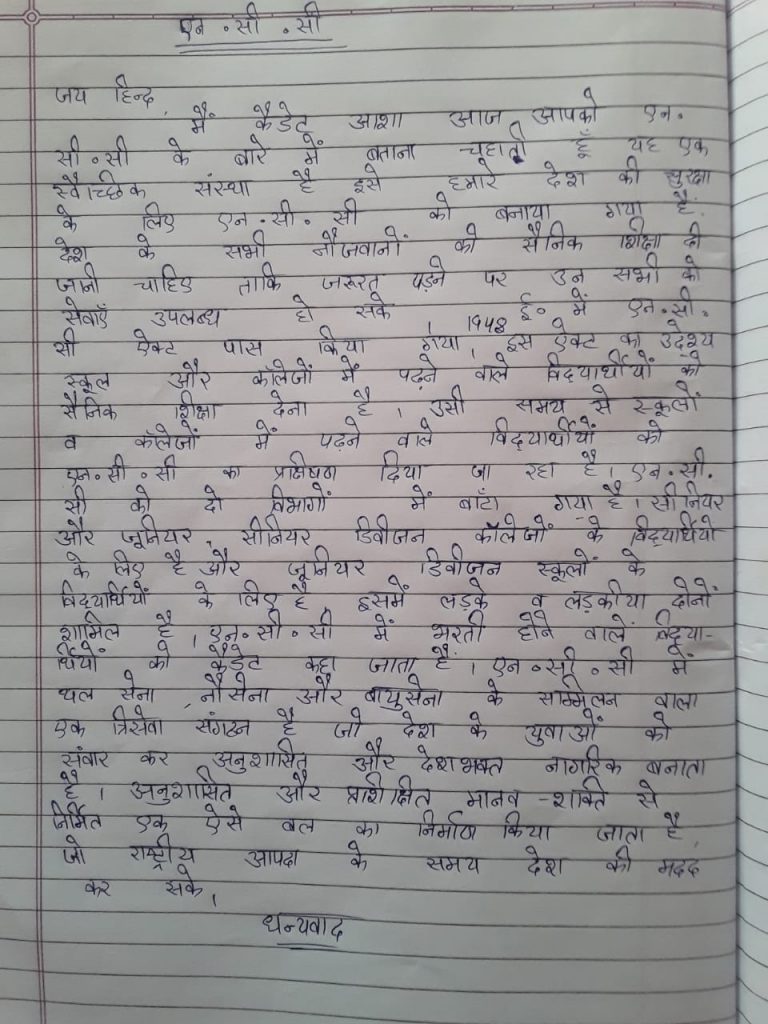 एन . सी . सी
जय हिन्द,
मैं कैडेट आशा आज आपको एन.
सी.सी के बारे में बताना चहाती हूँ यह एक
स्वैच्छिक संस्था है इसे हमारे देश की सुरक्षा
के लिए एन.सी.सी को बनाया गया है.
देश के सभी नौजवानों को सैनिक शिक्षा दी
जानी चाहिए ताकि जरूरत पड़ने पर उन सभी की
सेवाएँ उपलब्ध हो सके । 1948 ई० में एन.सी.
सी ऐक्ट पास किया गया, इस ऐक्ट का उदेश्य
स्कूल और कॉलेजों में पढ़ने वाले विद्यार्थीयों को
सैनिक शिक्षा देना है, उसी समय से स्कूलों
व कॉलेजों में पढ़ने वाले विद्यार्थीयों को
एन.सी.सी का दिया जा रहा है। एन.सी.
सी को दो विभागों में बाँटा गया है। सीनियर
और जूनियर, सीनियर डिवीजन कॉलेजों के विद्यार्थियो
के लिए है और जूनियर डिवीजन स्कूलों के
विद्यार्थियों के लिए है, इसमें लड़के व लड़कीया दोनों
शामिल है, एन.सी.सी में भरती होने वाले विद्या-
र्थियों को कैडेट कहा जाता है। एन.सी.सी में
थल सेना, नौसेना और वायुसेना के सम्मिलन वाला
एक त्रिसेवा संगटन है जो देश के युवाओं को
संवार कर अनुशासित और देशभक्त नागरिक बनाता
है। अनुशासित और प्रशिक्षित मानव-शक्ति से
निर्मित एक ऐसे बल का निर्माण किया जाता है,
जो राष्ट्रीय आपदा के समय देश की मदद
कर सके,
धन्यवाद